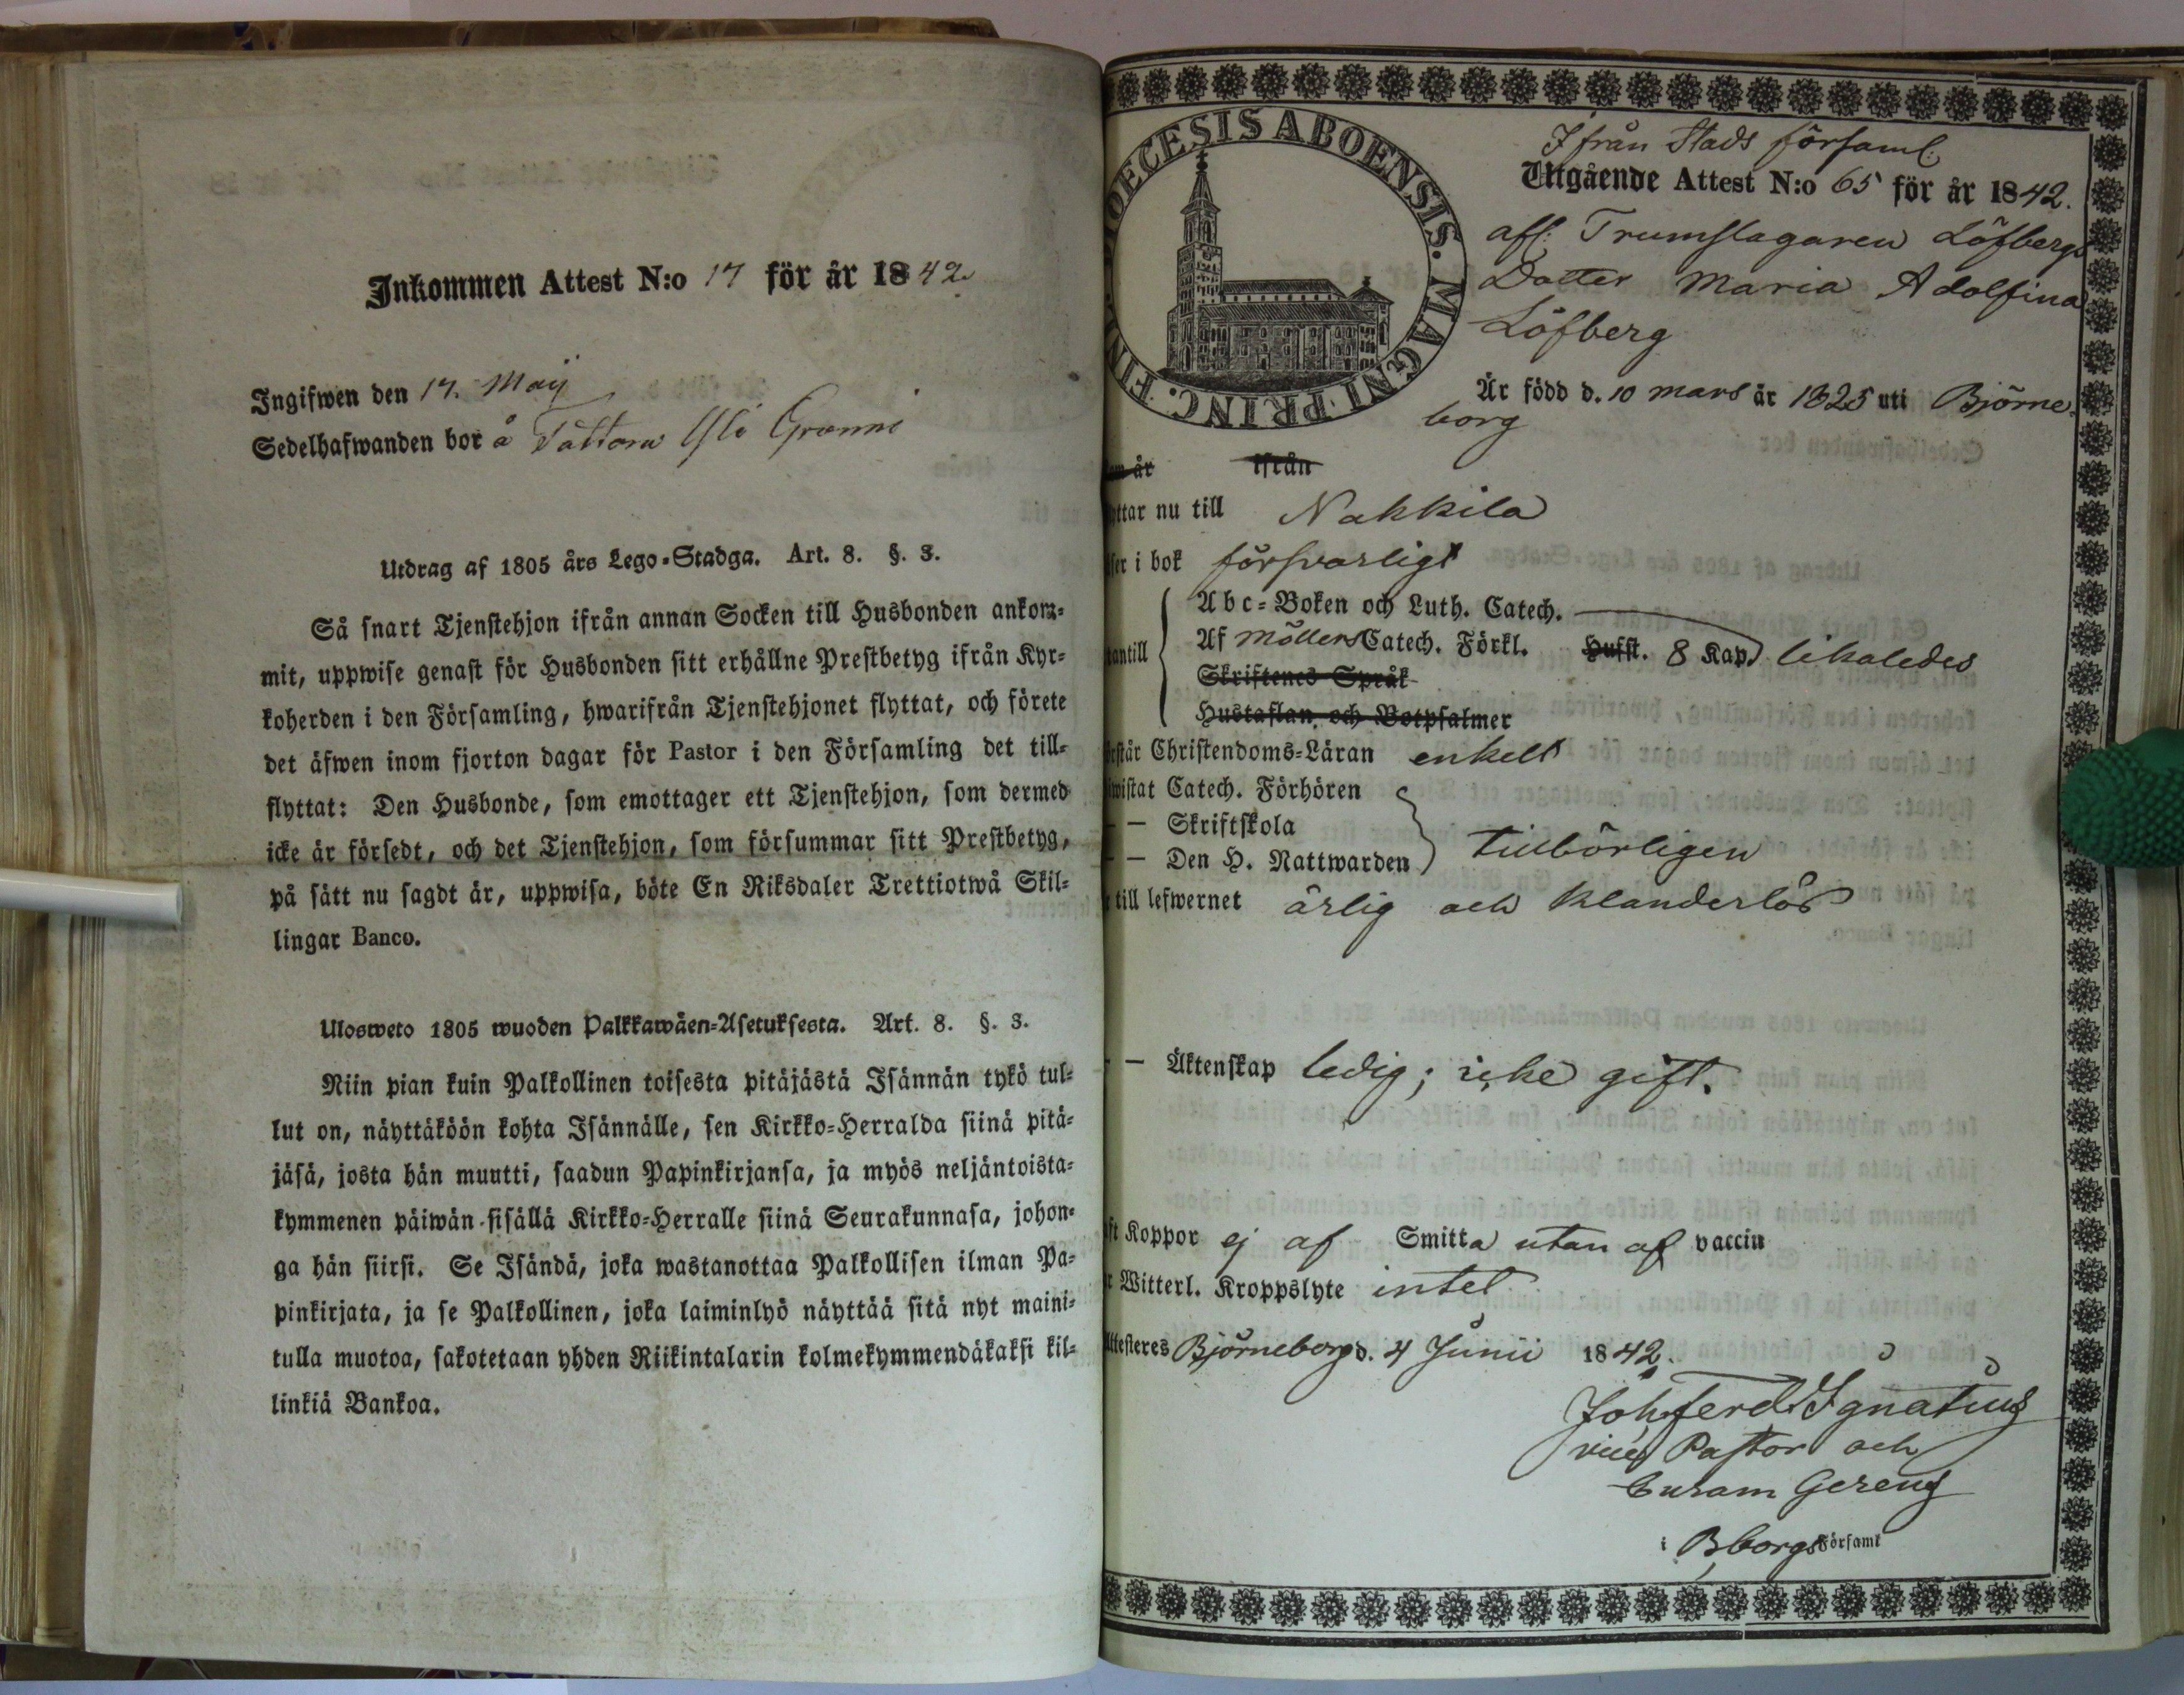 Inkommen Attest N:o 17 för år 1842
Ingifwen den 17. Maij
Sedelhafwanden bor å Tattara Yli Granni
Utdrag af 1805 års Lego-Stadga. Art. 8. §. 3.
Så snart Tjenstehjon ifrån annan Socken till Husbonden ankom-
mit, uppwise genast för Husbonden sitt erhållne Prestbetyg ifrån Kyr-
koherden i den Församling, hwarifrån Tjenstehjonet flyttat, och förete
det äfwen inom fjorton dagar för Pastor i den Församling det till-
flyttat: Den Husbonde, som emottager ett Tjenstehjon, som dermed
icke är försedt, och det Tjenstehjon, som försummar sitt Prestbetyg,
på sätt nu sagdt är, uppwisa, böte En Riksdaler Trettiotwå Skil-
lingar Banco.
Ulosweto 1805 wuoden Palkkawäen-Asetuksesta. Art. 8. §. 3.
Niin pian kuin Palkollinen toisesta pitäjästä Isännän tykö tul-
lut on, näyttäköön kohta Isännälle, sen Kirkko-Herralda siinä pitä-
jäsä, josta hän muutti, saadun Papinkirjansa, ja myös neljäntoista-
kymmenen päiwän sisällä Kirkko-Herralle siinä Seurakunnasa, johon-
ga hän siirsi. Se Isändä, joka wastanottaa Palkollisen ilman Pa-
pinkirjata, ja se Palkollinen, joka laiminlyö näyttää sitä nyt maini-
tulla muotoa, sakotetaan yhden Riikintalarin kolmekymmendäkaksi kil-
linkiä Bankoa.
DIOECESIS ABOENSIS. MAGNI PRINC. FIN
Ifrån Stads församl:
Utgående Attest N:o 65 för år 1842.
afl: Trumslagaren Löfbergs
Dotter Maria Adolfina
Löfberg
Är född d. 10 mars år 1825 uti Björne-
borg
om år ifrån
yttar nu till Nakkila
äser i bok försvarligt
Abc-Boken och Luth. Catech.
Af möllers Catech. Förkl. Hufst. 8 Kap. likaledes
antill
Skriftenes Språk
Hustaflan och Botpsalmer
örstår Christendoms-Läran enkelt
iwistat Catech. Förhören
— — Skriftskola
— — Den H. Nattwarden tillbörligen
r till lefwernet ärlig och klanderlös
— — Äktenskap ledig; icke gift.
aft Koppor ej af Smitta utan af vaccin
r Witterl. Kroppslyte intet
Attesteres Björneborg d. 4 Junii 1842.
Joh. Ferd. Ignatius
vice Pastor och
Curam Gerens
i Bborgs Församl